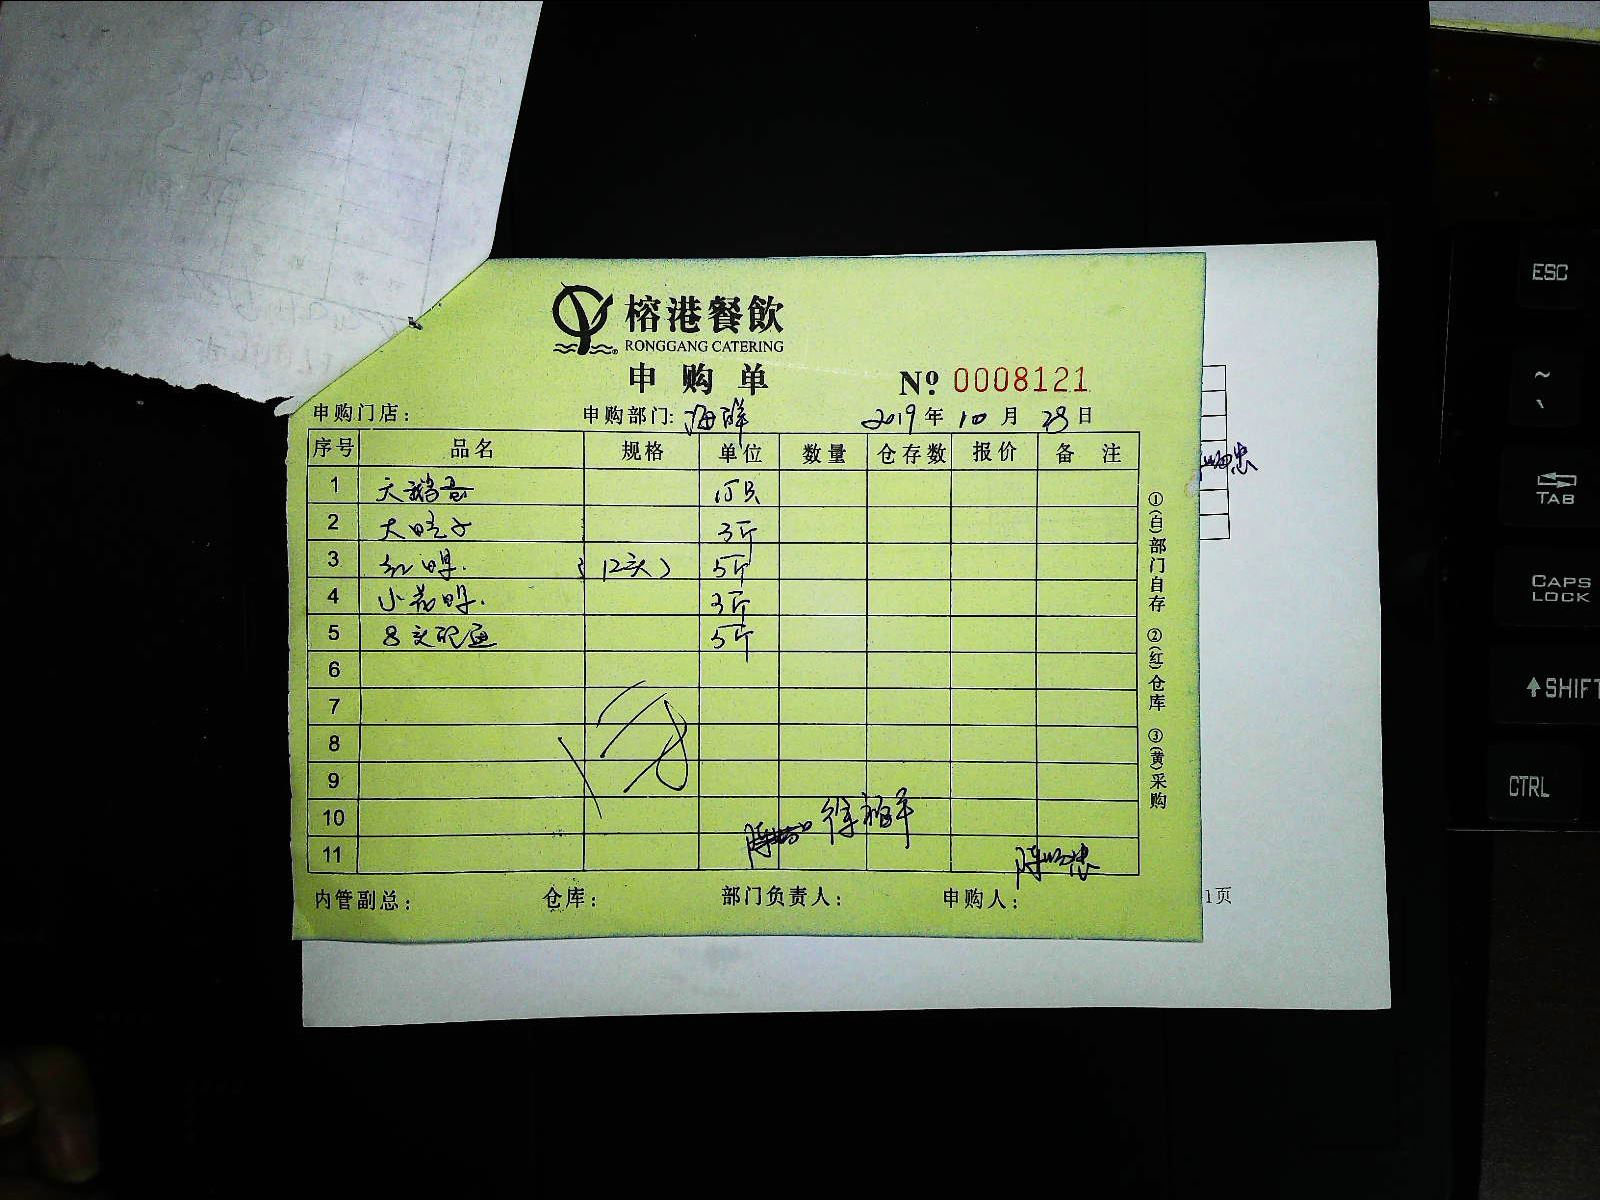 榕港餐飲
RONGGANG CATERING
申购单 № 0008121
申购门店: 申购部门: 海鲜 2019年10月28日
序号 品名 规格 单位 数量 仓存数 报价 备注
1 天鹅蛋 15只
2 大旺子 3斤
3 红 (12头) 5斤
4 小 3斤
5 8 5斤
6
7
8
9
10 徐福平
11
内管副总: 仓库: 部门负责人: 申购人:
①(白)部门自存 ②(红)仓库 ③(黄)采购
1页
ESC
~
`
TAB
CAPS LOCK
SHIFT
CTRL